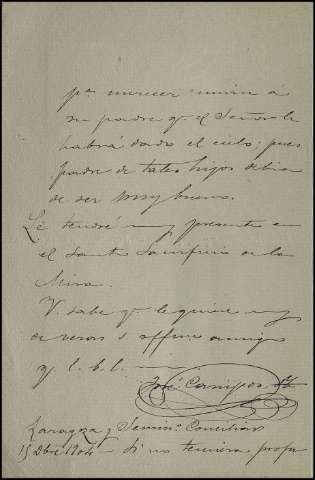 pª merecer unirse á
su padre q. el Señor le
habrá dado el cielo; pues
padre de tales hijos debia
de ser muy bueno.
Le tendré muy presente en
el Santo Sacrificio de la
Misa.
V. sabe q. le quiere muy
de veras s. affmo amigo
q. l. b. l. m.
José Campos
Zaragoza y Seminº Conciliar
15 Dbre 1904 - Si no tuviera profe